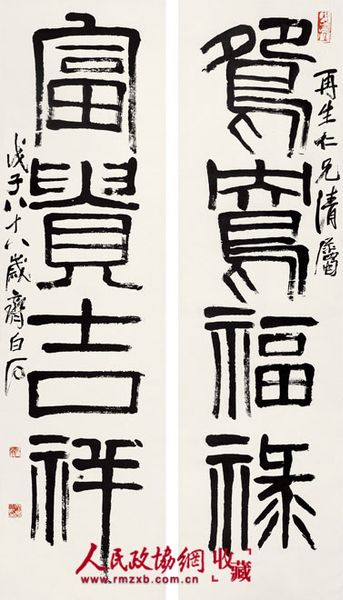 再生仁兄清屬
鴛鴦福祿
富貴吉祥
戊子八十八歲齊白石
人民政協網「收藏」
www.rmzxb.com.cn